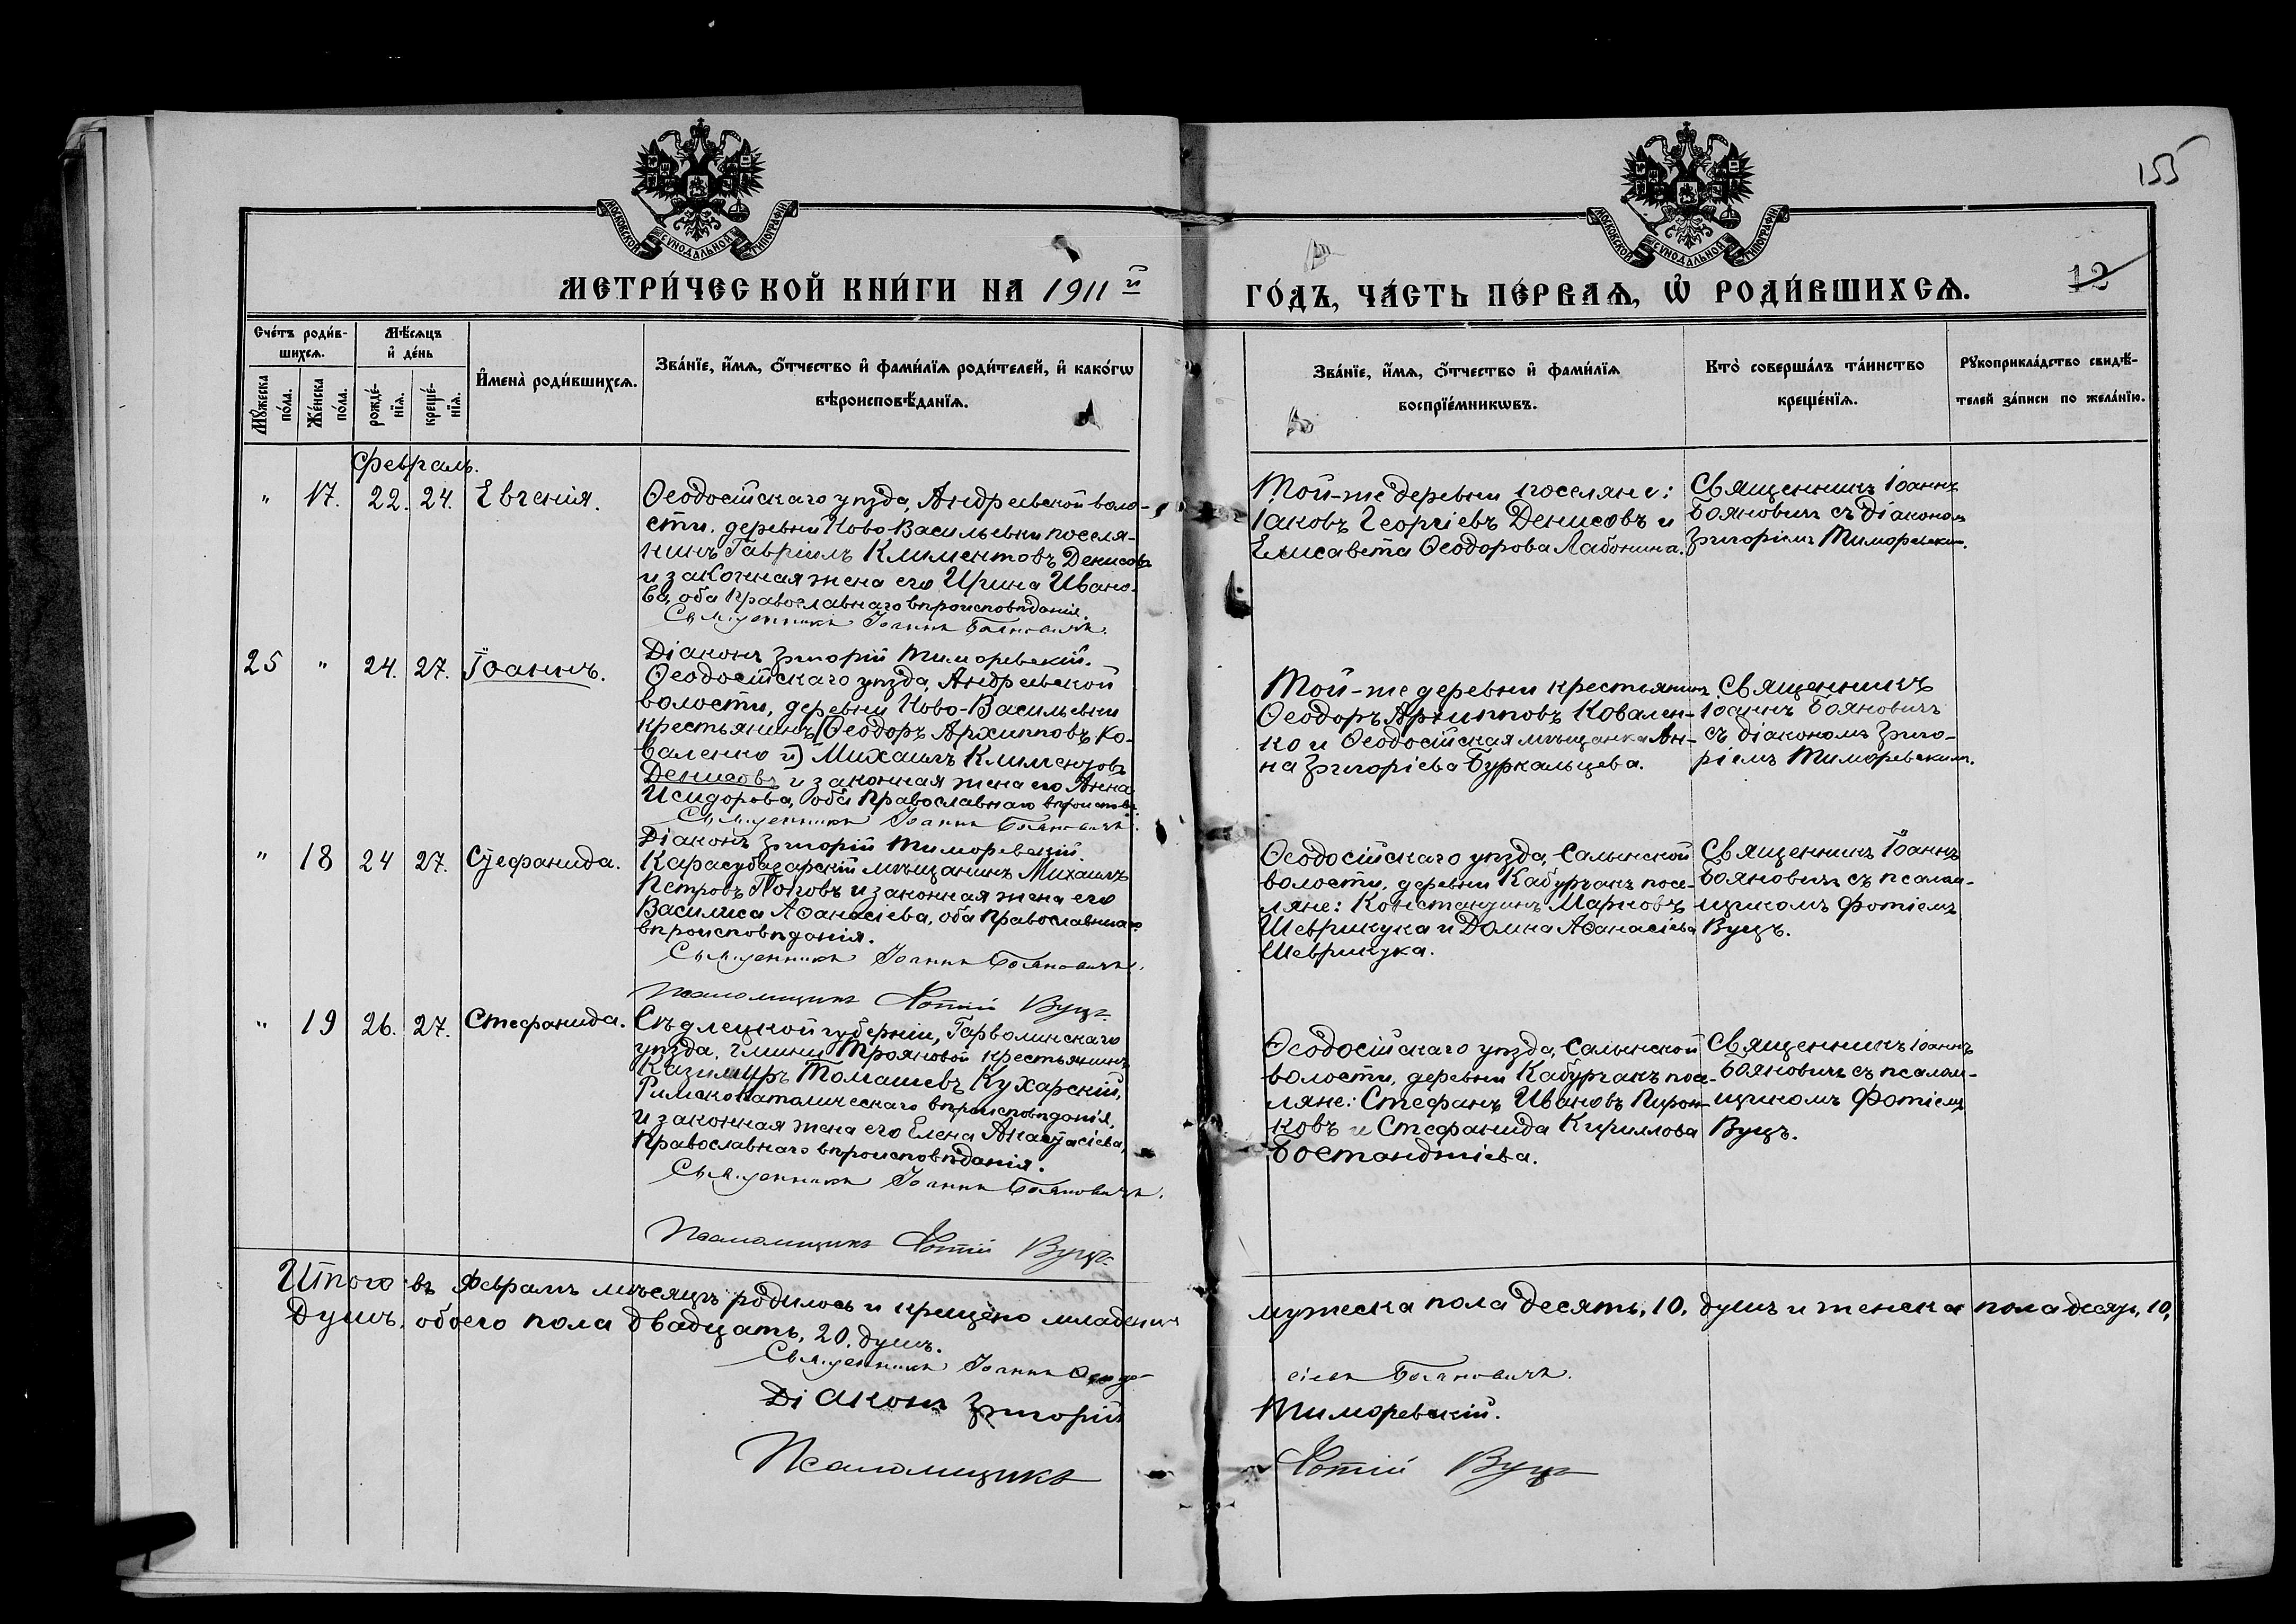 155
МОСКОВСКОЙ СѴНОДАЛЬНОЙ ТИПОГРАФІИ
МОСКОВСКОЙ СѴНОДАЛЬНОЙ ТИПОГРАФІИ
МЕТРИ́ЧЕСКОЙ КНИ́ГИ НА 1911й
ГО́ДЪ, ЧА́СТЬ ПЕ́РВАѦ, Ѡ҆ РОДИ́ВШИХСѦ.
12
Сче́тъ роди́в-
шихсѧ.
Мꙋ́жеска по́ла.
Же́нска по́ла.
Мѣ́сѧцъ
и҆ де́нь
рожде́-
нїѧ.
креще́-
нїѧ.
И҆мена̀ роди́вшихсѧ.
Зва́нїе, и҆́мѧ, ѻ҆́тчество и҆ фами́лїѧ роди́телей, и҆ како́гѡ
вѣроисповѣ́данїѧ.
Зва́нїе, и҆́мѧ, ѻ҆́тчество и҆ фами́лїѧ
воспрїе́мникѡвъ.
Кто̀ соверша́лъ та́инство
креще́нїѧ.
Рꙋкоприкла́дство свидѣ́-
телей за́писи по жела́нїю.
Февраль.
" 17. 22. 24. Евгенія.
Ѳеодосійскаго уѣзда, Андреевской воло-
сти, деревни Ново-Васильевки поселя-
нинъ Гавріилъ Климентовъ Денисовъ
и законная жена его Ирина Ивано-
ва, оба Православнаго вѣроисповѣданія.
Священникъ Іоаннъ Бояновичъ.
Діаконъ Григорій Тиморевскій.
Той-же деревни поселяне:
Іаковъ Георгіевъ Денисовъ и
Елисавета Ѳеодорова Лабонина.
Священникъ Іоаннъ
Бояновичъ съ діакономъ
Григоріемъ Тиморевским.
25 " 24. 27. Іоаннъ.
Ѳеодосійскаго уѣзда, Андреевской
волости, деревни Ново-Васильевки
крестьянинъ (Ѳеодоръ Архипповъ Ко-
валенко и) Михаилъ Климентовъ
Денисовъ и законная жена его Анна
Исидорова, оба Православнаго вѣроисповѣ.
Священникъ Іоаннъ Бояновичъ.
Діаконъ Григорій Тиморевскій.
Той-же деревни крестьянинъ
Ѳеодоръ Архипповъ Ковален-
ко и Ѳеодосійская мѣщанка Ан-
на Григоріева Буркальцева.
Священникъ
Іоаннъ Бояновичъ
съ діакономъ Григо-
ріемъ Тиморевским.
" 18 24 27. Стефанида.
Карасубазарскій мѣщанинъ Михаилъ
Петровъ Поповъ и законная жена его
Василиса Аѳанасіева, оба Православнаго
вѣроисповѣданія.
Священникъ Іоаннъ Бояновичъ.
Псаломщикъ Фотій Вуцъ.
Ѳеодосійскаго уѣзда, Салынской
волости, деревни Кабурчакъ посе-
ляне: Константинъ Марковъ
Шеврикука и Домна Аѳанасіева
Шеврикука.
Священникъ Іоаннъ
Бояновичъ съ псалом-
щикомъ Фотіемъ
Вуцъ.
" 19 26. 27. Стефанида.
Сѣдлецкой губерніи, Гарволинскаго
уѣзда, гмины Трояновой крестьянинъ
Казимиръ Томашевъ Кухарскій,
Римско-католическаго вѣроисповѣданія,
и законная жена его Елена Анастасіева,
Православнаго вѣроисповѣданія.
Священникъ Іоаннъ Бояновичъ.
Псаломщикъ Фотій Вуцъ.
Ѳеодосійскаго уѣзда, Салынской
волости, деревни Кабурчакъ посе-
ляне: Стефанъ Ивановъ Пирож-
ковъ и Стефанида Кириллова
Бостанджіева.
Священникъ Іоаннъ
Бояновичъ съ псалом-
щикомъ Фотіемъ
Вуцъ.
Итого въ Февралѣ мѣсяцѣ родилось и крещено младенцев мужеска пола десять, 10, душъ и женска пола десять, 10,
Душъ, обоего пола двадцать, 20, душъ.
Священникъ Іоаннъ Ѳеодо-
сіевъ Бояновичъ.
Діаконъ Григорій Тиморевскій.
Псаломщикъ Фотій Вуцъ